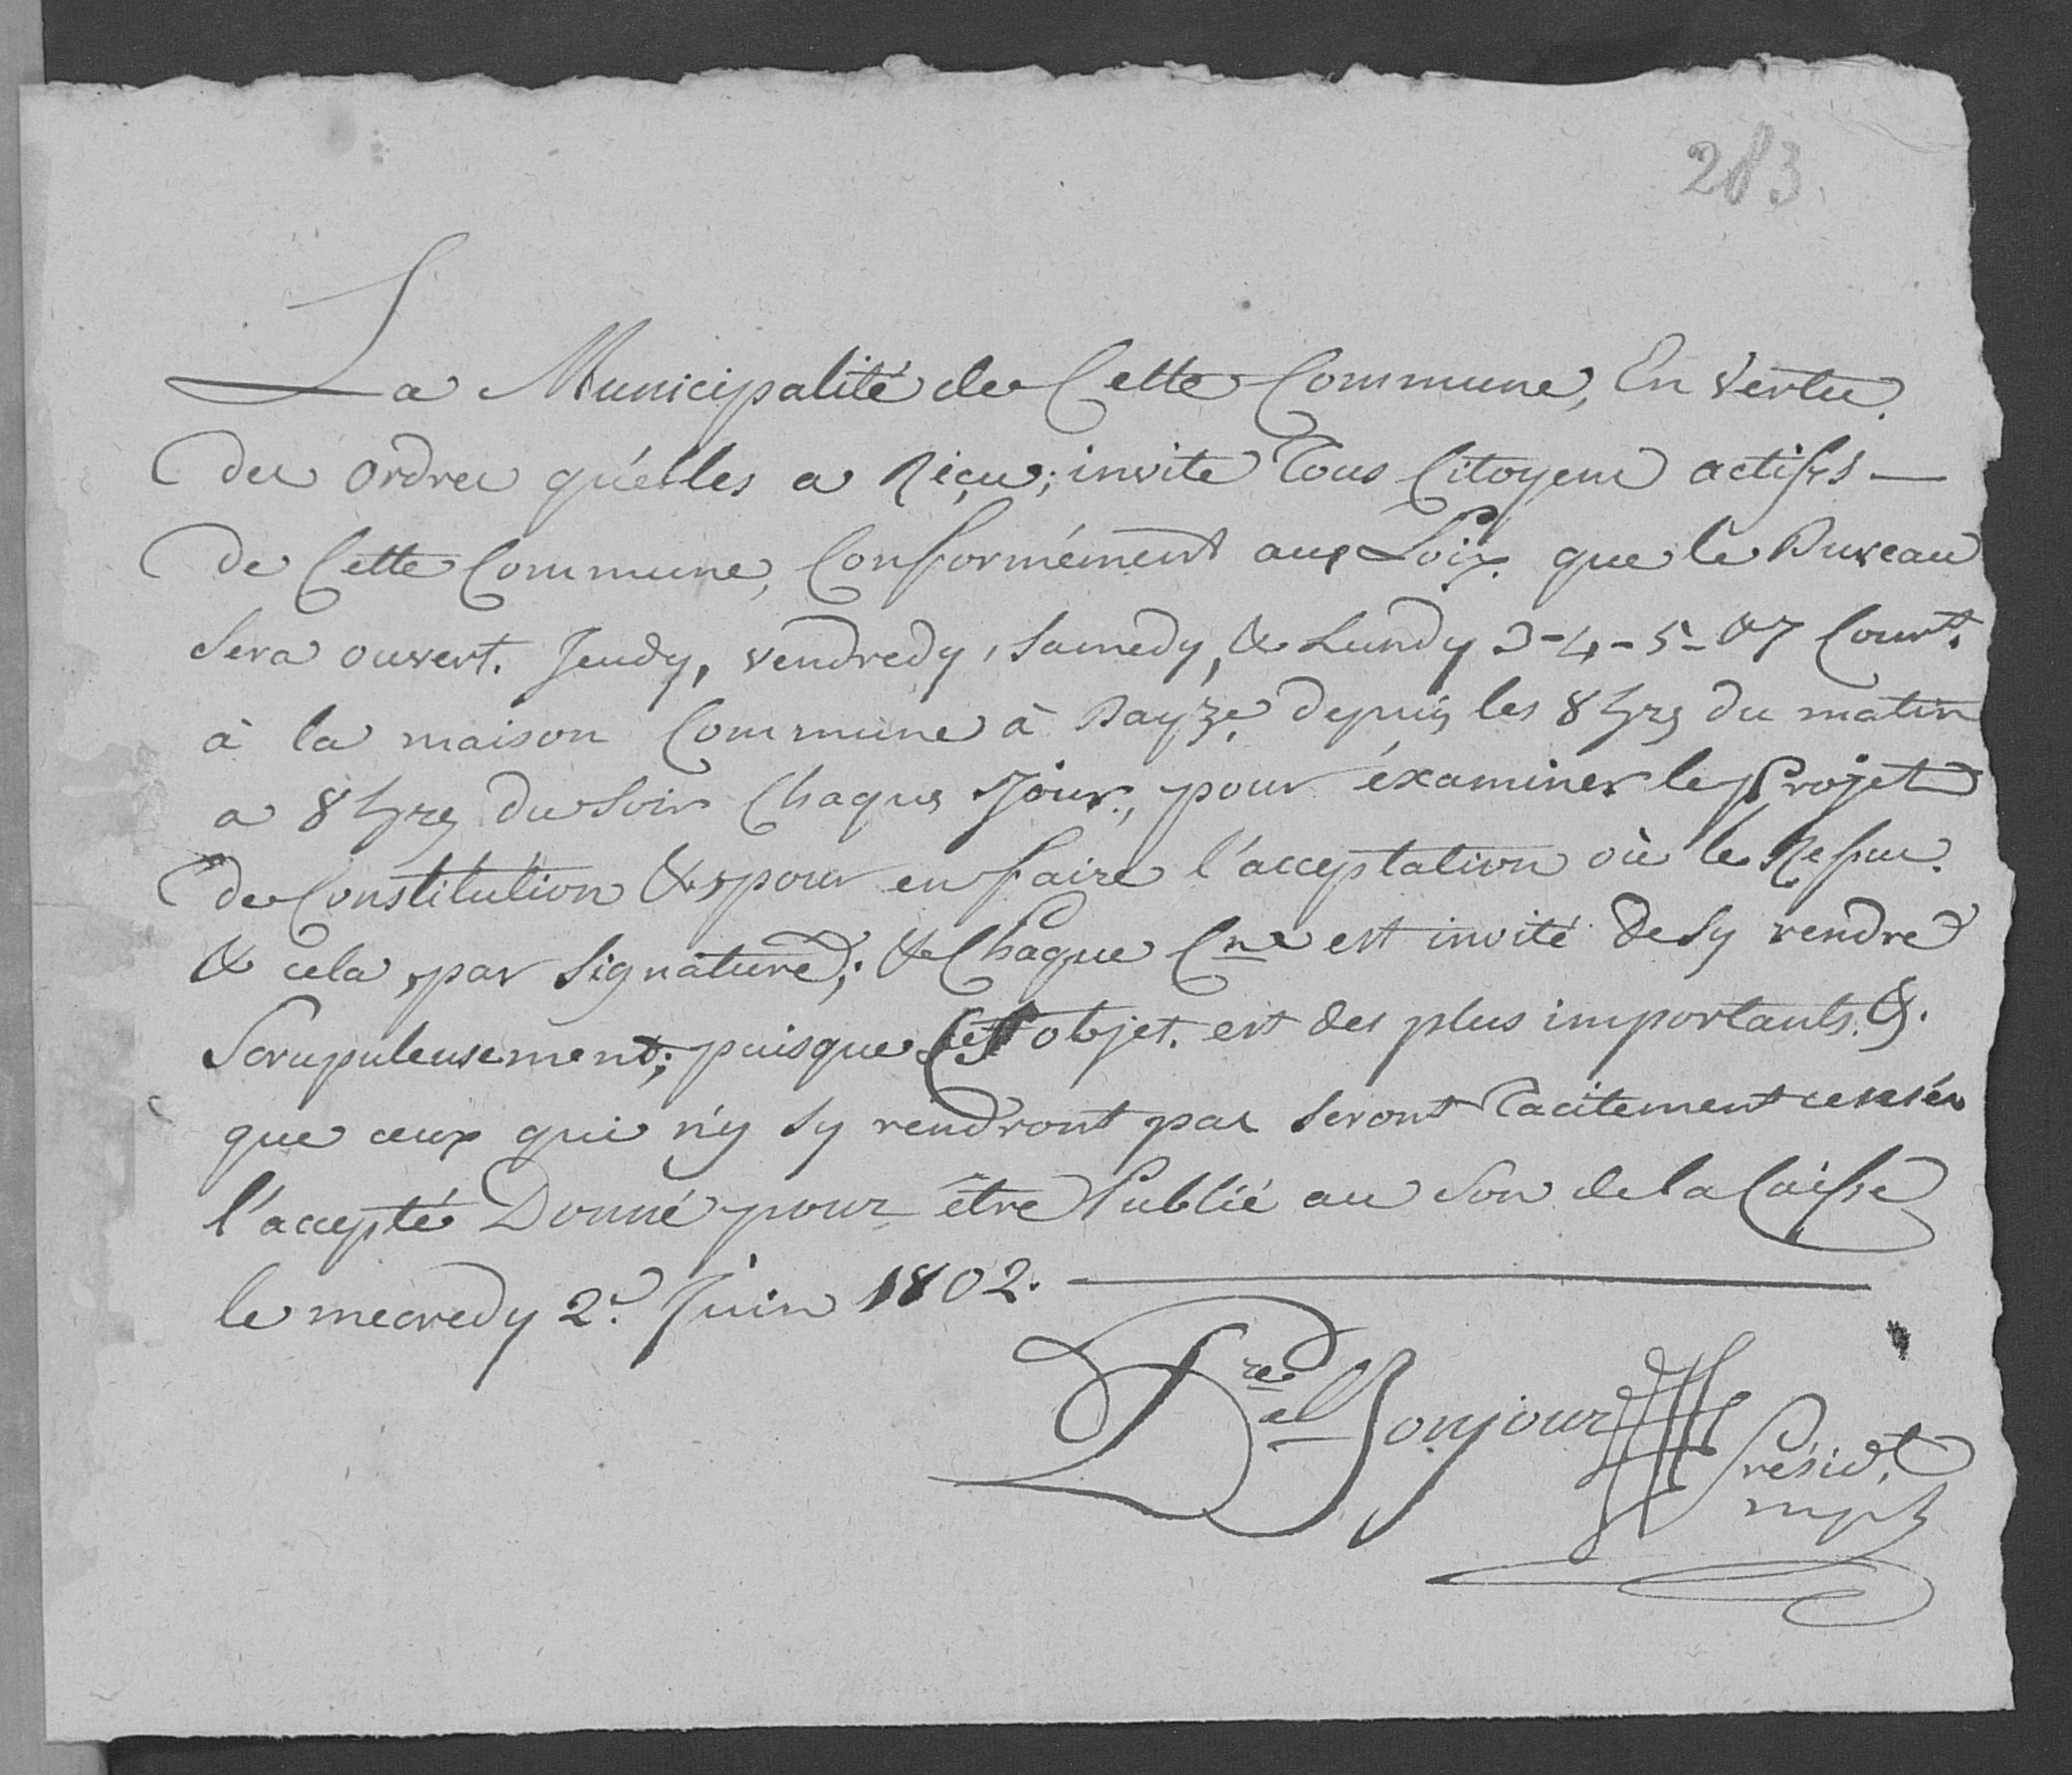 283
La Municipalité de Cette Commune, En Vertu
des ordres qu'elles a Reçu; invite Tous Citoyens actifs —
de Cette Commune, Conformément aux Loix que le Bureau
sera ouvert. Jeudy, vendredy, samedy, & Lundy 3-4-5-&7 Court.
à la maison Commune à depuis les 8 hrs du matin
a 8 hrs du soir Chaque Jour, pour éxaminer le Projet
de Constitution & pour en faire l'acceptation où le Refus.
& cela par signature; & Chaque Cne est invité de sy rendre
Scrupuleusement; puisque Cet objet. est des plus importants. &.
que ceux qui n'y sy rendront pas seront Tacitement censés
l'accepté Donné pour être Publié au Son de la Caisse
le mecredy 2d. Juin 1802. —
Dre el Bonjour Présidt.
mpp